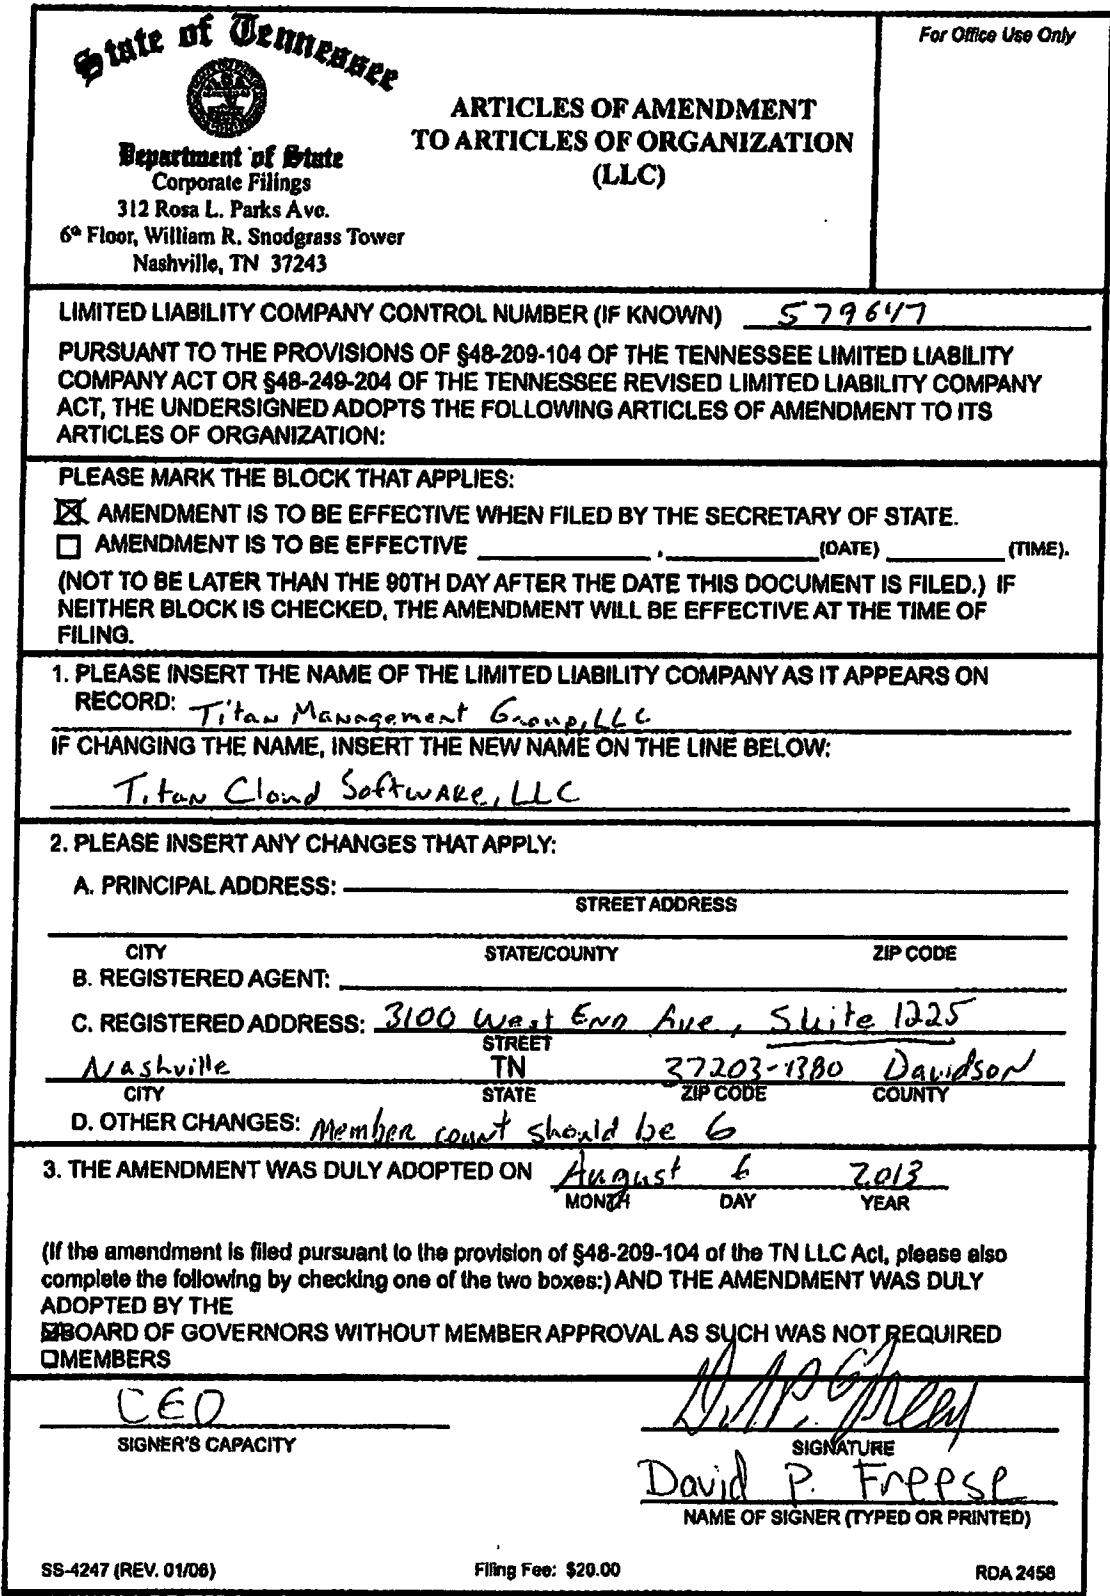 State of Tennessee
For Office Use Only
ARTICLES OF AMENDMENT
TO ARTICLES OF ORGANIZATION
(LLC)
Department of State
Corporate Filings
312 Rosa L. Parks Ave.
6th Floor, William R. Snodgrass Tower
Nashville, TN 37243
LIMITED LIABILITY COMPANY CONTROL NUMBER (IF KNOWN) 579647
PURSUANT TO THE PROVISIONS OF §48-209-104 OF THE TENNESSEE LIMITED LIABILITY
COMPANY ACT OR §48-249-204 OF THE TENNESSEE REVISED LIMITED LIABILITY COMPANY
ACT, THE UNDERSIGNED ADOPTS THE FOLLOWING ARTICLES OF AMENDMENT TO ITS
ARTICLES OF ORGANIZATION:
PLEASE MARK THE BLOCK THAT APPLIES:
☒ AMENDMENT IS TO BE EFFECTIVE WHEN FILED BY THE SECRETARY OF STATE.
☐ AMENDMENT IS TO BE EFFECTIVE ____________ , ____________ (DATE) ____________ (TIME).
(NOT TO BE LATER THAN THE 90TH DAY AFTER THE DATE THIS DOCUMENT IS FILED.) IF
NEITHER BLOCK IS CHECKED, THE AMENDMENT WILL BE EFFECTIVE AT THE TIME OF
FILING.
1. PLEASE INSERT THE NAME OF THE LIMITED LIABILITY COMPANY AS IT APPEARS ON
RECORD: Titan Management Group, LLC
IF CHANGING THE NAME, INSERT THE NEW NAME ON THE LINE BELOW:
Titan Cloud Software, LLC
2. PLEASE INSERT ANY CHANGES THAT APPLY:
A. PRINCIPAL ADDRESS:
STREET ADDRESS
CITY STATE/COUNTY ZIP CODE
B. REGISTERED AGENT:
C. REGISTERED ADDRESS: 3100 West End Ave, Suite 1225
STREET
Nashville TN 37203-1380 Davidson
CITY STATE ZIP CODE COUNTY
D. OTHER CHANGES: Member count should be 6
3. THE AMENDMENT WAS DULY ADOPTED ON August 6 2013
MONTH DAY YEAR
(If the amendment is filed pursuant to the provision of §48-209-104 of the TN LLC Act, please also
complete the following by checking one of the two boxes:) AND THE AMENDMENT WAS DULY
ADOPTED BY THE
☒BOARD OF GOVERNORS WITHOUT MEMBER APPROVAL AS SUCH WAS NOT REQUIRED
☐MEMBERS
CEO
SIGNER'S CAPACITY
SIGNATURE
David P. Freese
NAME OF SIGNER (TYPED OR PRINTED)
SS-4247 (REV. 01/06) Filing Fee: $20.00 RDA 2458